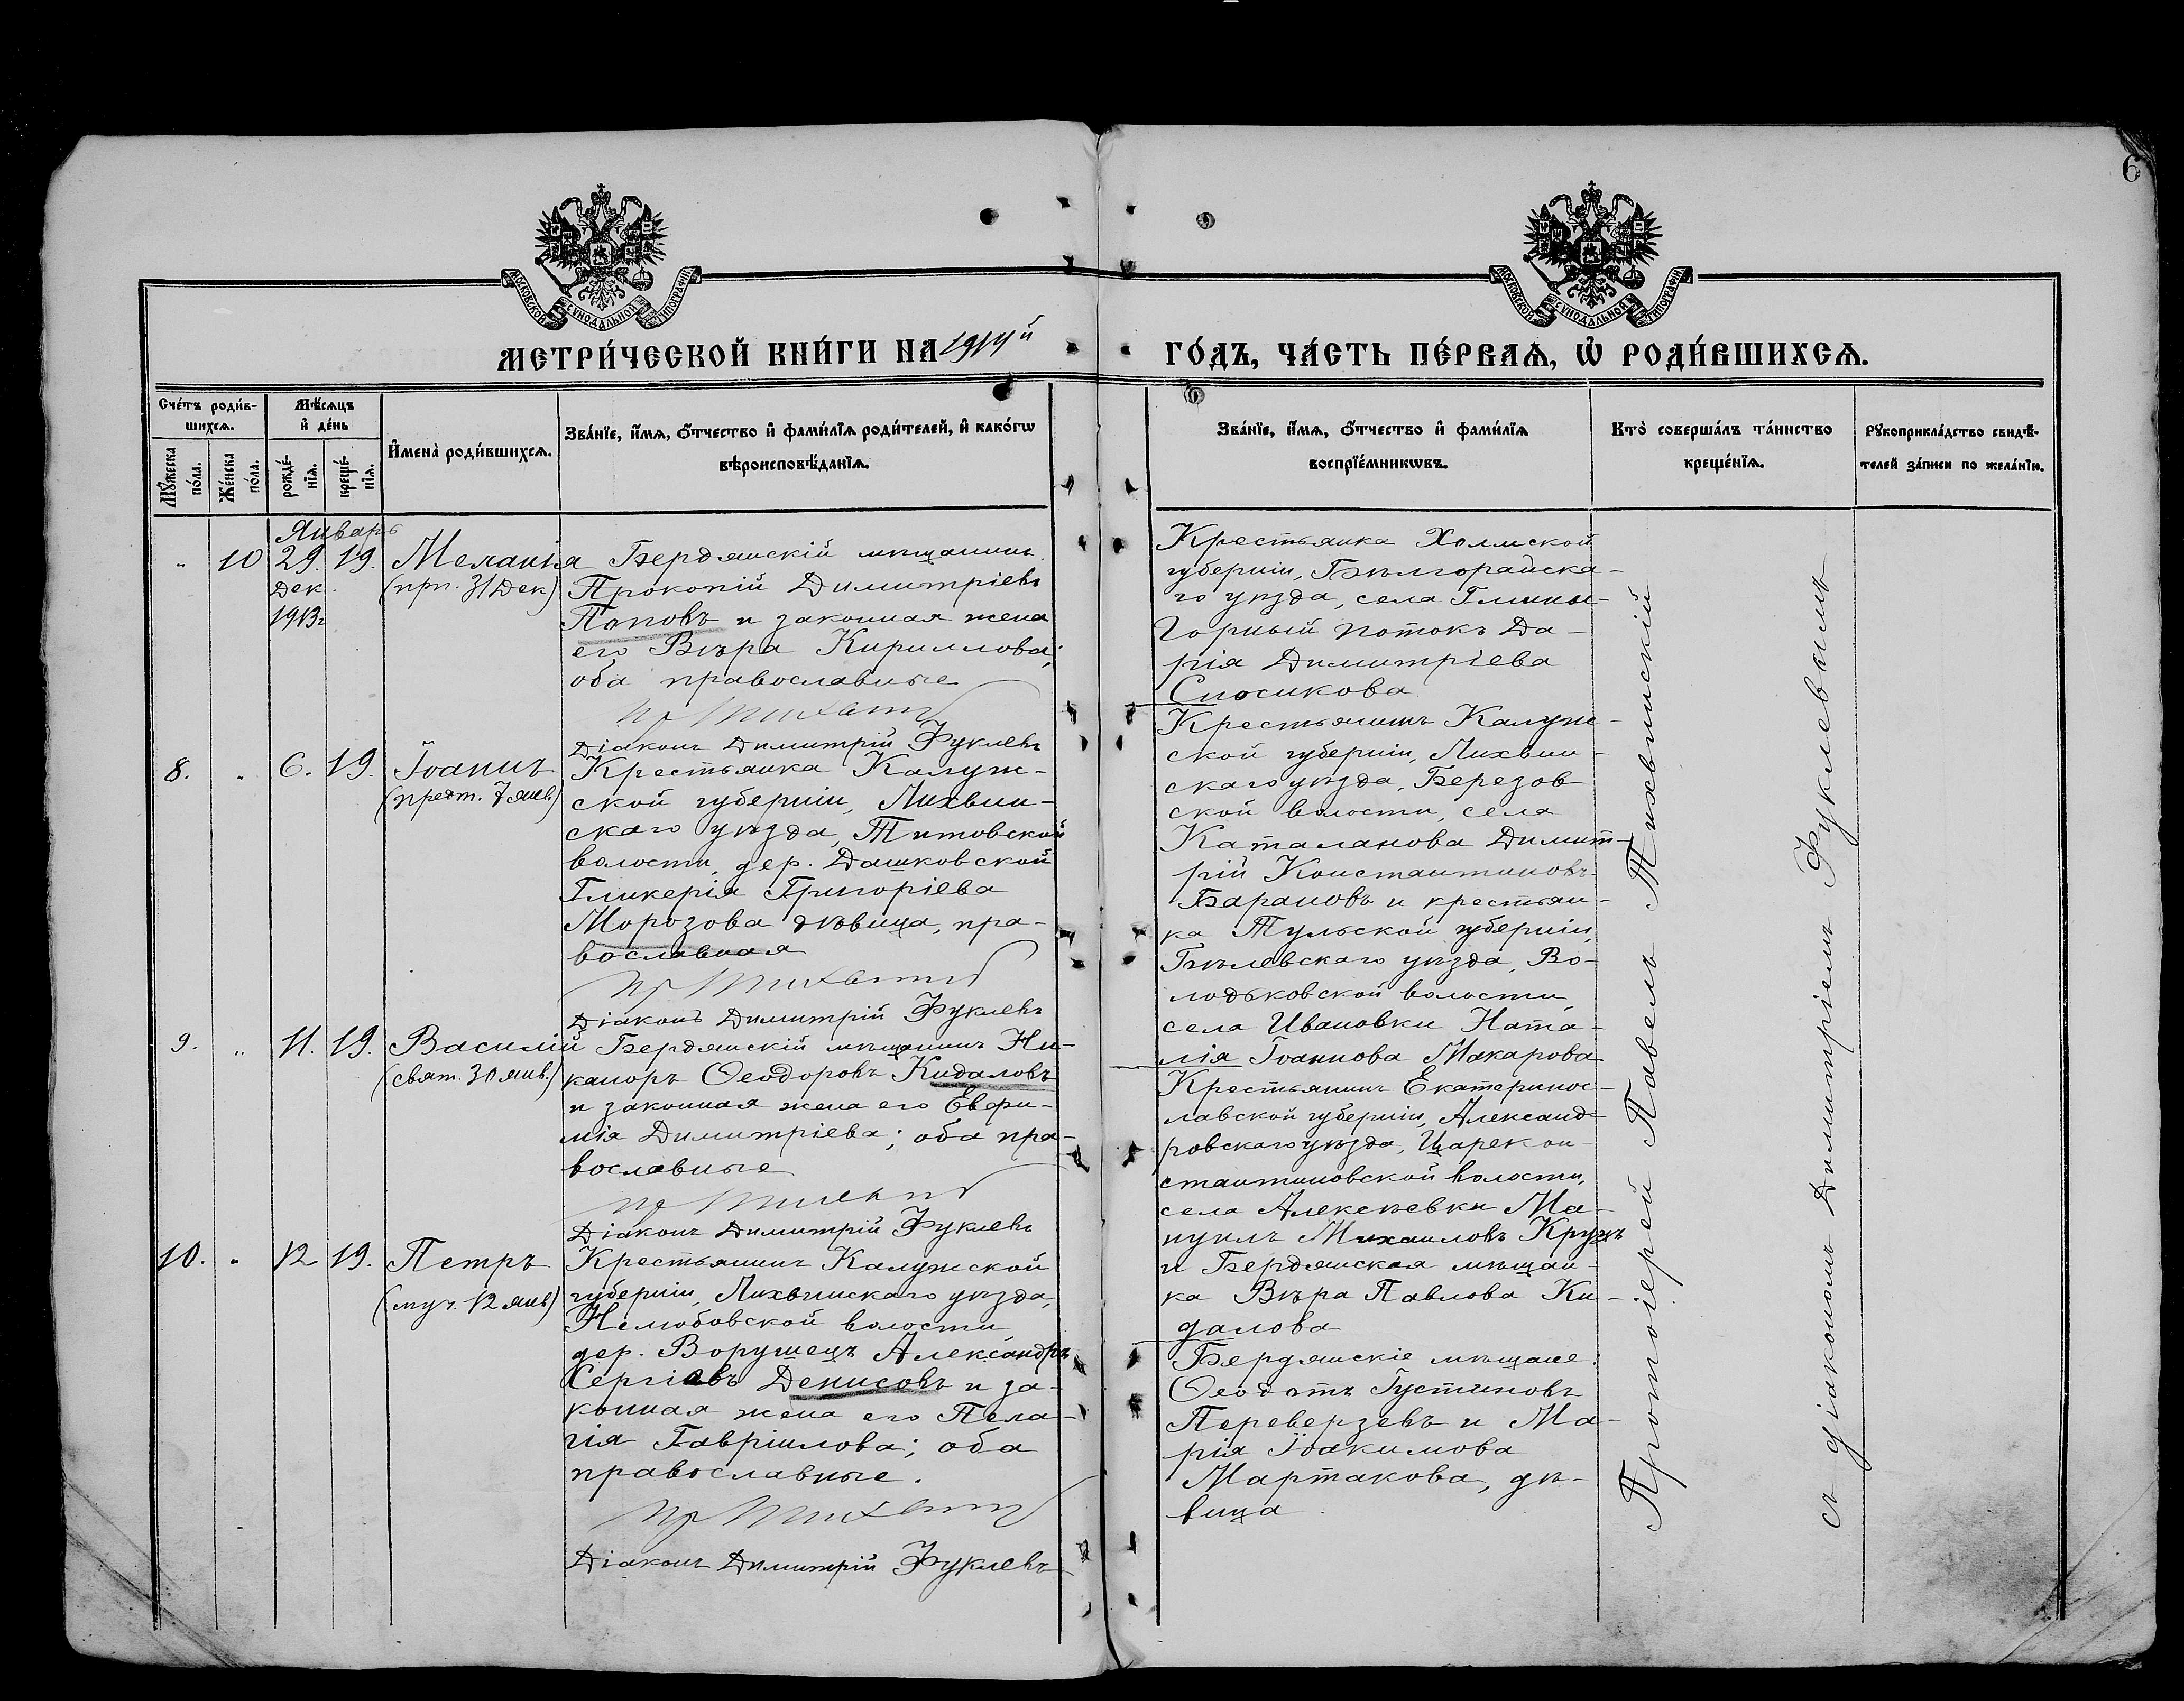 6
МОСКОВСКОЙ СѴНОДАЛЬНОЙ ТИПОГРАФІИ
МОСКОВСКОЙ СѴНОДАЛЬНОЙ ТИПОГРАФІИ
МЕТРИ́ЧЕСКОЙ КНИ́ГИ НА 1914й ГО́ДЪ, ЧА́СТЬ ПЕ́РВАѦ, Ѡ҆ РОДИ́ВШИХСѦ.
Сче́тъ роди́в-
шихсѧ.
Мꙋ́жеска
по́ла.
Же́нска
по́ла.
Мѣ́сѧцъ
и҆ де́нь
рожде́-
нїѧ.
креще́-
нїѧ.
И҆мена̀ роди́вшихсѧ.
Зва́нїе, и҆́мѧ, ѻ҆́тчество и҆ фами́лїѧ роди́телей, и҆ како́гѡ
вѣроисповѣ́данїѧ.
Зва́нїе, и҆́мѧ, ѻ҆́тчество и҆ фами́лїѧ
воспрїе́мникѡвъ.
Кто̀ соверша́лъ та́инство
креще́нїѧ.
Рꙋкоприкла́дство свидѣ́-
телей за́писи по жела́нїю.
Январь
" 10 29. 19. Меланія
Дек.
1913г
(прп. 31 Дек)
Бердянскій мѣщанинъ
Прокопій Димитріевъ
Поповъ и законная жена
его Вѣра Кириллова;
оба православные
Діаконъ Димитрій Фуклевъ
Крестьянка Холмской
губерніи, Бѣлгорайска-
го уѣзда, села Глины-
Горный потокъ Да-
рія Димитріева
8. " 6. 19. Іоаннъ
(предт. 7 янв.)
Крестьянка Калуж-
ской губерніи, Лихвин-
скаго уѣзда, Титовской
волости, дер. Дашковской
Гликерія Григоріева
Морозова дѣвица, пра-
вославная
Діаконъ Димитрій Фуклевъ
Крестьянинъ Калуж-
ской губерніи, Лихвин-
скаго уѣзда, Березов
ской волости, села
Каталанова Димит-
рій Константиновъ
Барановъ и крестьян-
ка Тульской губерніи,
Бѣлевскаго уѣзда, Во-
лодьковской волости,
села Ивановки Ната-
лія Іоаннова Макарова
9. " 11. 19. Василій
(свят. 30 янв.)
Бердянскій мѣщанинъ Ни-
каноръ Ѳеодоровъ Кидаловъ
и законная жена его Евфи-
мія Димитріева; оба пра-
вославные
Діаконъ Димитрій Фуклевъ
Крестьянинъ Екатеринос-
лавской губерніи, Александ-
ровскаго уѣзда, Царекон-
стантиновской волости,
села Алексѣевки Ма-
нуилъ Михаиловъ
и Бердянская мѣщан-
ка Вѣра Павлова Ки-
далова
10. " 12 19. Петръ
(муч. 12 янв)
Крестьянинъ Калужской
губерніи, Лихвинскаго уѣзда,
Нелюбовской волости,
дер. Ворушецъ Александръ
Сергіевъ Денисовъ и за-
конная жена его Пела-
гія Гавріилова; оба
православные.
Діаконъ Димитрій Фуклевъ
Бердянскіе мѣщане:
Ѳеодотъ Густиновъ
Переверзевъ и Ма-
рія Іоакимова
Мартакова, дѣ-
вица.
Протоіерей Павелъ Тихвинскій
съ діакономъ Димитріемъ Фуклевымъ